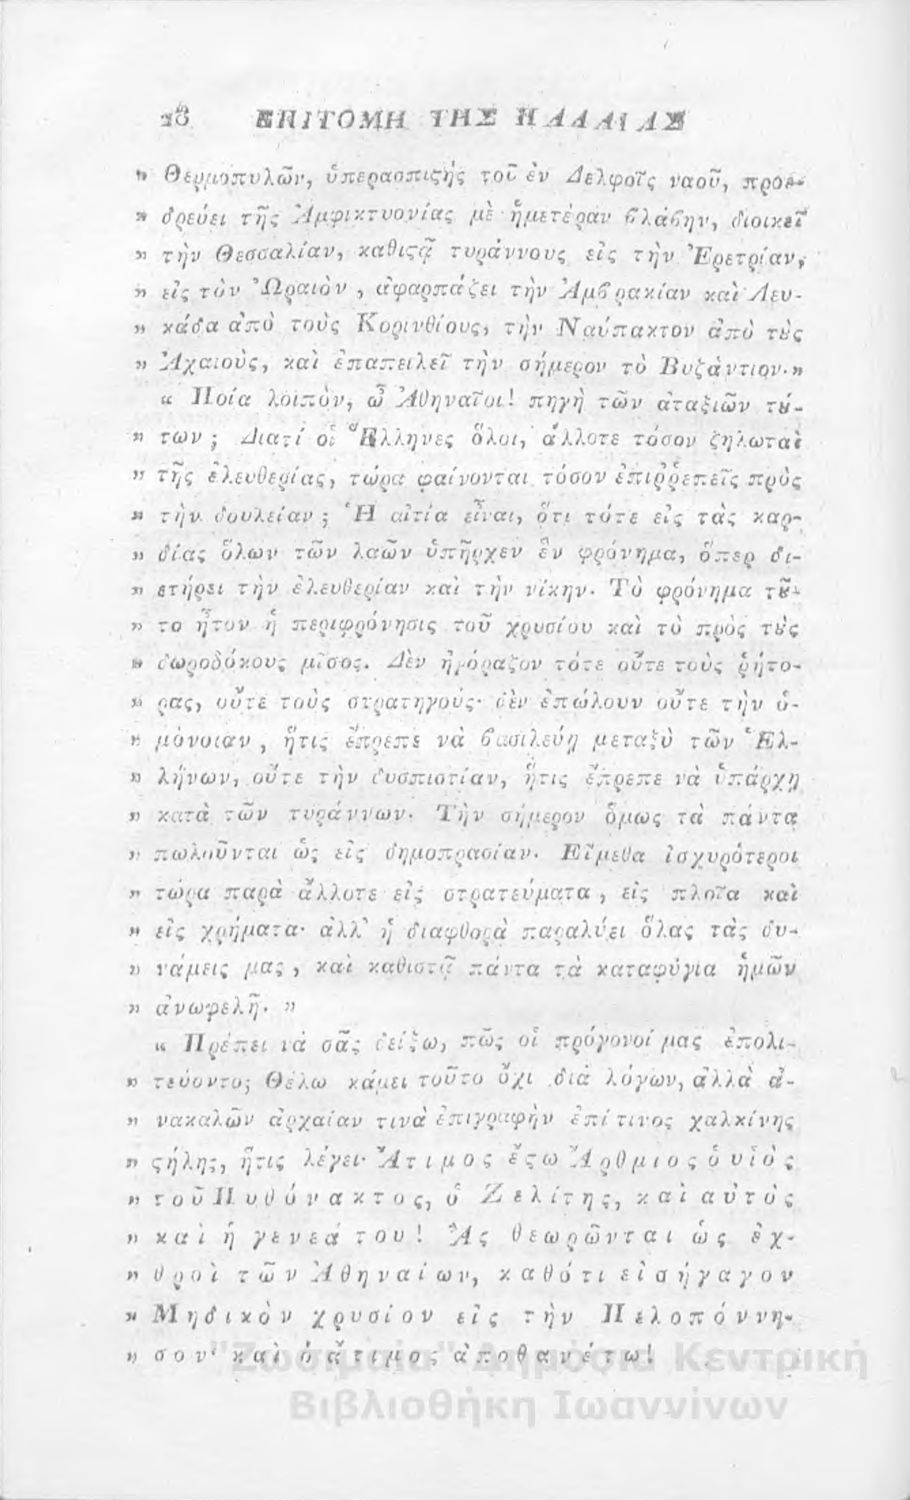 28 ΕΠΙΤΟΜΗ ΤΗΣ ΠΑΛΑΙΑΣ
» Θερμοπυλῶν, ὑπερασπιςὴς τοῦ ἐν Δελφοῖς ναοῦ, προε-
» δρεύει τῆς Ἀμφικτυονίας μὲ ἡμετέραν βλάβην, διοικεῖ
» τὴν Θεσσαλίαν, καθιςᾷ τυράννους εἰς τὴν Ἐρετρίαν,
» εἰς τὸν Ὠραιὸν, ἀφαρπάζει τὴν Ἀμβρακίαν καὶ Λευ-
» κάδα ἀπὸ τοὺς Κορινθίους, τὴν Ναύπακτον ἀπὸ τȣ̀ς
» Ἀχαιοὺς, καὶ ἐπαπειλεῖ τὴν σήμερον τὸ Βυζάντιον.»
« Ποία λοιπὸν, ὦ Ἀθηναῖοι! πηγὴ τῶν ἀταξιῶν τȣ́-
» των; Διατί οἱ Ἕλληνες ὅλοι, ἄλλοτε τόσον ζηλωταὶ
» τῆς ἐλευθερίας, τώρα φαίνονται τόσον ἐπιῤῥεπεῖς πρὸς
» τὴν δουλείαν; Ἡ αἰτία εἶναι, ὅτι τότε εἰς τὰς καρ-
» δίας ὅλων τῶν λαῶν ὑπῆρχεν ἓν φρόνημα, ὅπερ δι-
» ετήρει τὴν ἐλευθερίαν καὶ τὴν νίκην. Τὸ φρόνημα τȣ͂-
» το ἦτον ἡ περιφρόνησις τοῦ χρυσίου καὶ τὸ πρὸς τȣ̀ς
» δωροδόκους μῖσος. Δὲν ἠγόραζον τότε οὔτε τοὺς ῥήτο-
» ρας, οὔτε τοὺς στρατηγούς· δὲν ἐπώλουν οὔτε τὴν ὁ-
» μόνοιαν, ἥτις ἔπρεπε νὰ βασιλεύῃ μεταξὺ τῶν Ἑλ-
» λήνων, οὔτε τὴν δυσπιστίαν, ἥτις ἔπρεπε νὰ ὑπάρχῃ
» κατὰ τῶν τυράννων. Τὴν σήμερον ὅμως τὰ πάντα
» πωλοῦνται ὡς εἰς δημοπρασίαν. Εἴμεθα ἰσχυρότεροι
» τώρα παρὰ ἄλλοτε εἰς στρατεύματα, εἰς πλοῖα καὶ
» εἰς χρήματα· ἀλλ' ἡ διαφθορὰ παραλύει ὅλας τὰς δυ-
» νάμεις μας, καὶ καθιστᾷ πάντα τὰ καταφύγια ἡμῶν
» ἀνωφελῆ. »
« Πρέπει νὰ σᾶς δείξω, πῶς οἱ πρόγονοί μας ἐπολι-
» τεύοντο; Θέλω κάμει τοῦτο ὄχι διὰ λόγων, ἀλλὰ ἀ-
» νακαλῶν ἀρχαίαν τινὰ ἐπιγραφὴν ἐπί τινος χαλκίνης
» ςήλης, ἥτις λέγει· Ἄτιμος ἔςω Ἄρθμιος ὁ υἱὸς
» τοῦ Πυθώνακτος, ὁ Ζελίτης, καὶ αὐτὸς
» καὶ ἡ γενεά του! Ἂς θεωρῶνται ὡς ἐχ-
» θροὶ τῶν Ἀθηναίων, καθότι εἰσήγαγον
» Μηδικὸν χρυσίον εἰς τὴν Πελοπόννη-
» σον· καὶ ὁ ἄτιμος ἀποθανέτω!
"Ζωσιμαία" Δημόσια Κεντρική
Βιβλιοθήκη Ιωαννίνων